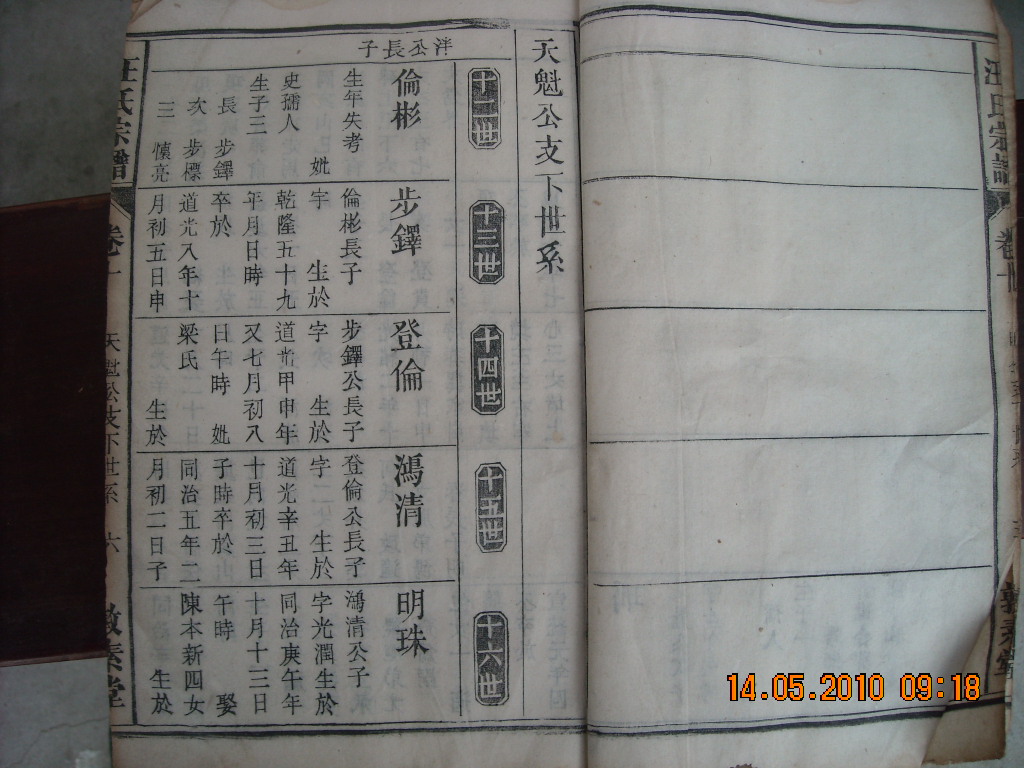 汪氏宗譜
天魁公支下世系
十二世
十三世
十四世
十五世
十六世
泮公長子
倫彬
生年失考 妣
史孺人
生子三
長 步鐸
次 步標
三 懷亮
步鐸
倫彬長子
字 生於
乾隆五十九
年月日時
卒於
道光八年十
月初五日申
登倫
步鐸公長子
字 生於
道光甲申年
又七月初八
日午時 妣
梁氏
生於
鴻清
登倫公長子
字 生於
道光辛丑年
十月初三日
子時卒於
同治五年二
月初二日子
明珠
鴻清公子
字光潤生於
同治庚午年
十月十三日
午時 娶
陳本新四女
生於
汪氏宗譜
天魁公支下世系 六
敦素堂
14.05.2010 09:18